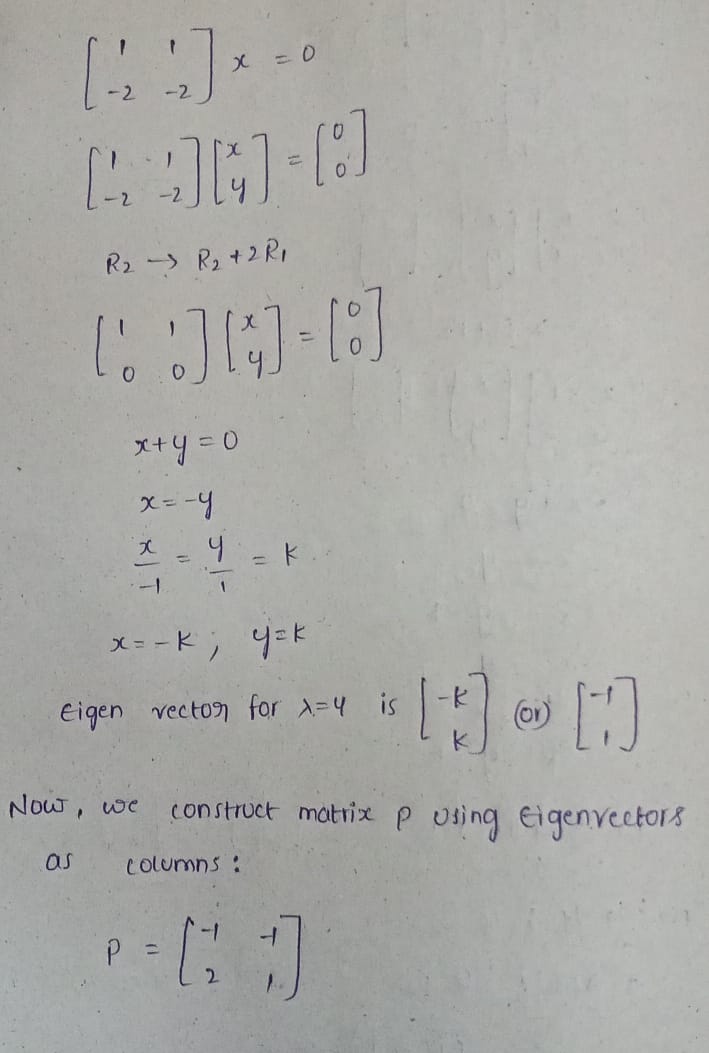 [1 1
-2 -2] x = 0
[1 1
-2 -2] [x
y] = [0
0]
R₂ → R₂ + 2R₁
[1 1
0 0] [x
y] = [0
0]
x + y = 0
x = -y
x/-1 = y/1 = k
x = -k ; y = k
Eigen vector for λ=4 is [-k
k] (or) [-1
1]
Now, we construct matrix P using Eigenvectors
as columns :
P = [-1 -1
2 1]